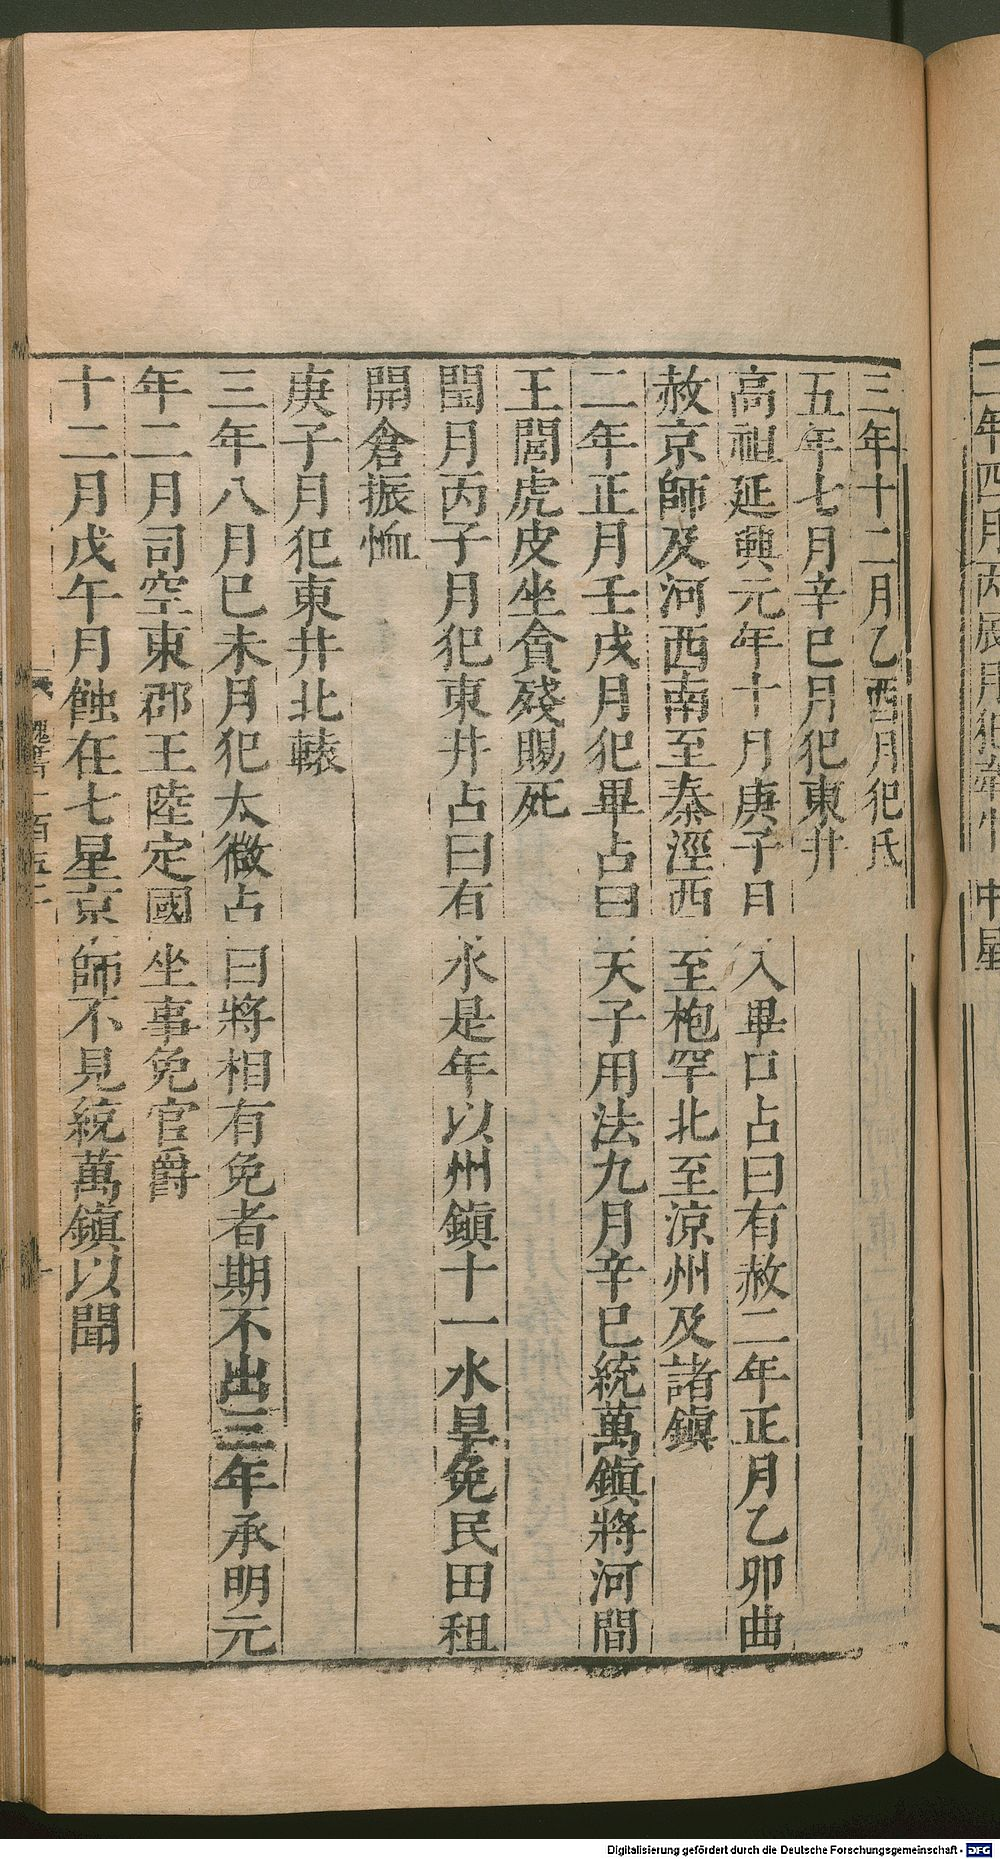 二年四月丙辰月犯牽牛中星
三年十二月乙酉月犯氐
五年七月辛巳月犯東井
高祖延興元年十月庚子日入畢口占曰有赦二年正月乙卯曲
赦京師及河西南至秦涇西至枹罕北至涼州及諸鎮
二年正月壬戌月犯畢占曰天子用法九月辛巳統萬鎮將河間
王閭虎皮坐貪殘賜死
閏月丙子月犯東井占曰有水是年以州鎮十一水旱免民田租
開倉振恤
庚子月犯東井北轅
三年八月巳未月犯太微占曰將相有免者期不出三年承明元
年二月司空東郡王陸定國坐事免官爵
十二月戊午月蝕在七星京師不見統萬鎮以聞
魏書一百五
Digitalisierung gefördert durch die Deutsche Forschungsgemeinschaft - DFG